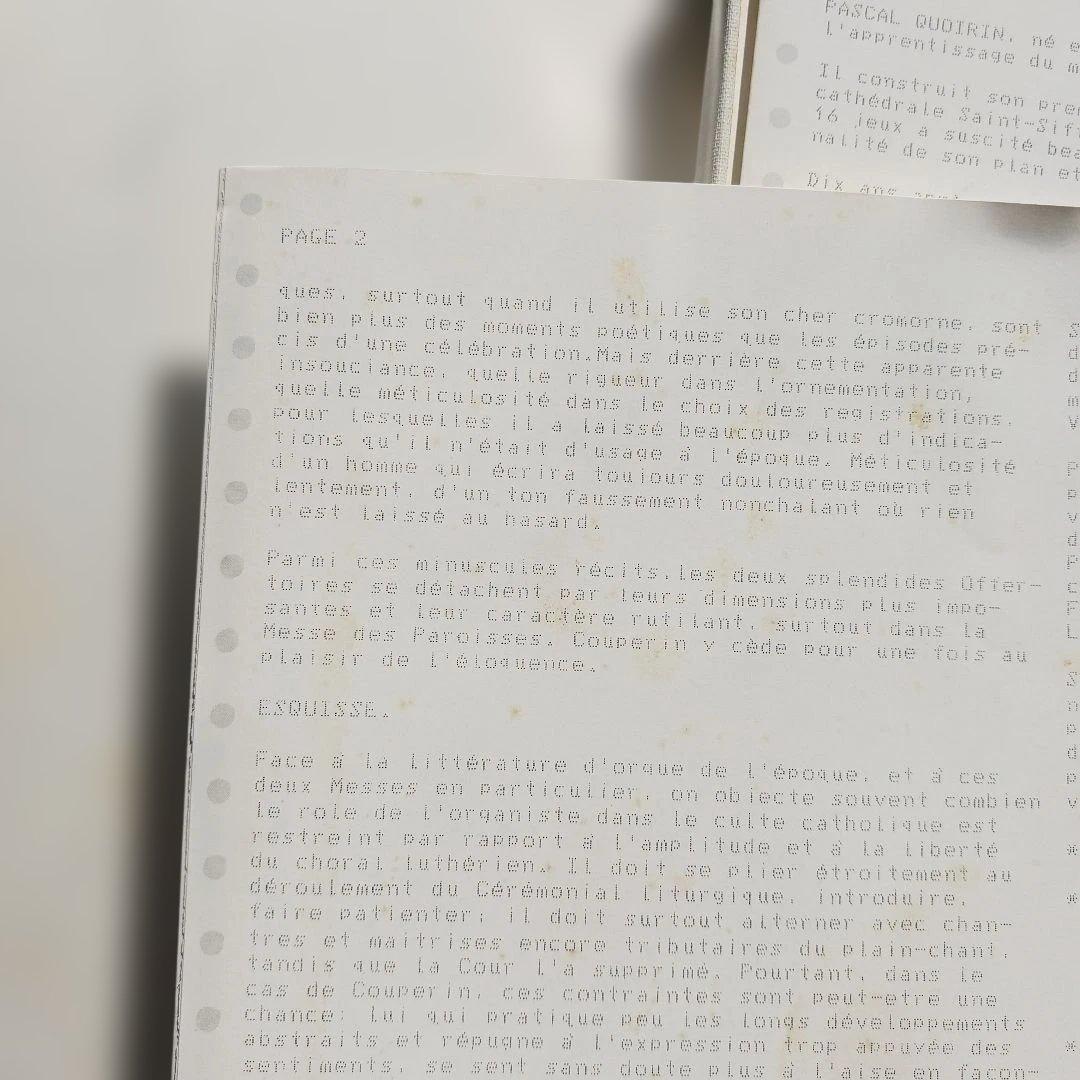 PASCAL QUOIRIN, né
l'apprentissage du
Il construit son
cathédrale
16 jeux a suscité
nalité de son plan et
Dix ans
PAGE 2
ques, surtout quand il utilise son cher cromorne, sont
bien plus des moments poétiques que les épisodes pré-
cis d'une célébration.Mais derrière cette apparente
insouciance, quelle rigueur dans l'ornementation,
quelle méticulosité dans le choix des registrations,
pour lesquelles il a laissé beaucoup plus d'indica-
tions qu'il n'était d'usage à l'époque. Méticulosité
d'un homme qui écrira toujours douloureusement et
lentement, d'un ton faussement nonchalant où rien
n'est laissé au hasard.
Parmi ces minuscules récits,les deux splendides Offer-
toires se détachent par leurs dimensions plus impo-
santes et leur caractère rutilant, surtout dans la
Messe des Paroisses. Couperin y cède pour une fois au
plaisir de l'éloquence.
ESQUISSE.
Face à la littérature d'orgue de l'époque, et à ces
deux Messes en particulier, on objecte souvent combien
le role de l'organiste dans le culte catholique est
restreint par rapport à l'amplitude et à la liberté
du choral luthérien. Il doit se plier étroitement au
déroulement du Cérémonial liturgique, introduire,
faire patienter; il doit surtout alterner avec chan-
tres et maitrises encore tributaires du plain-chant,
tandis que la Cour l'a supprimé. Pourtant, dans le
cas de Couperin, ces contraintes sont peut-etre une
chance: lui qui pratique peu les longs développements
abstraits et répugne à l'expression trop appuyée des
sentiments, se sent sans doute plus à l'aise en façon-